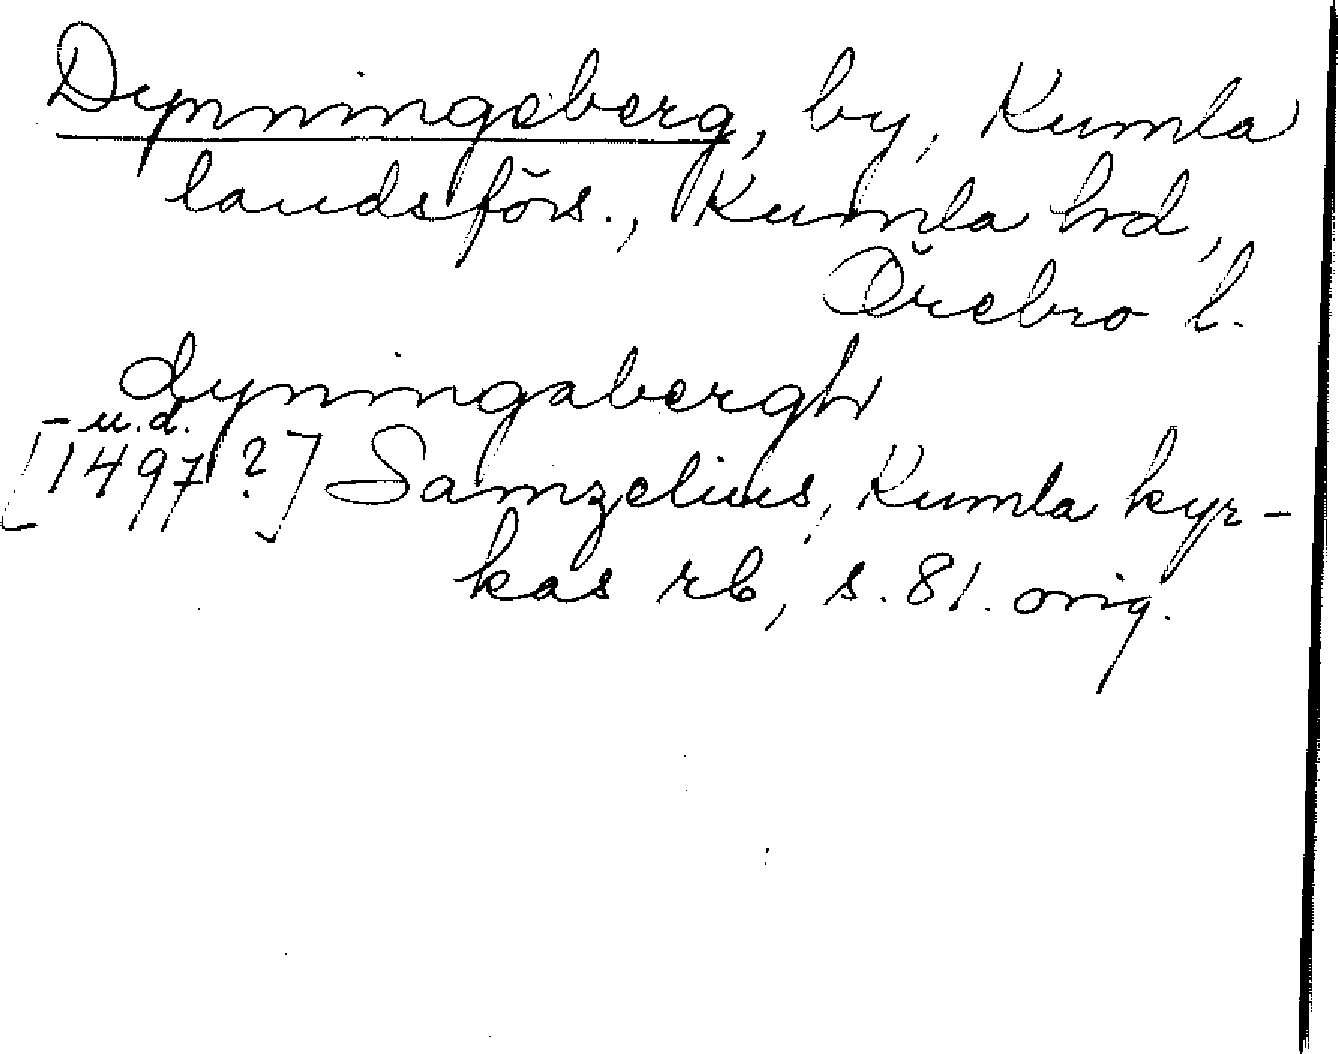 Dynningeberg, by, Kumla
landsförs., Kumla hd,
Örebro l.
dyningabergh
- u.d.
[1497?] Samzelius, Kumla kyr-
kas rb, s. 81. orig.